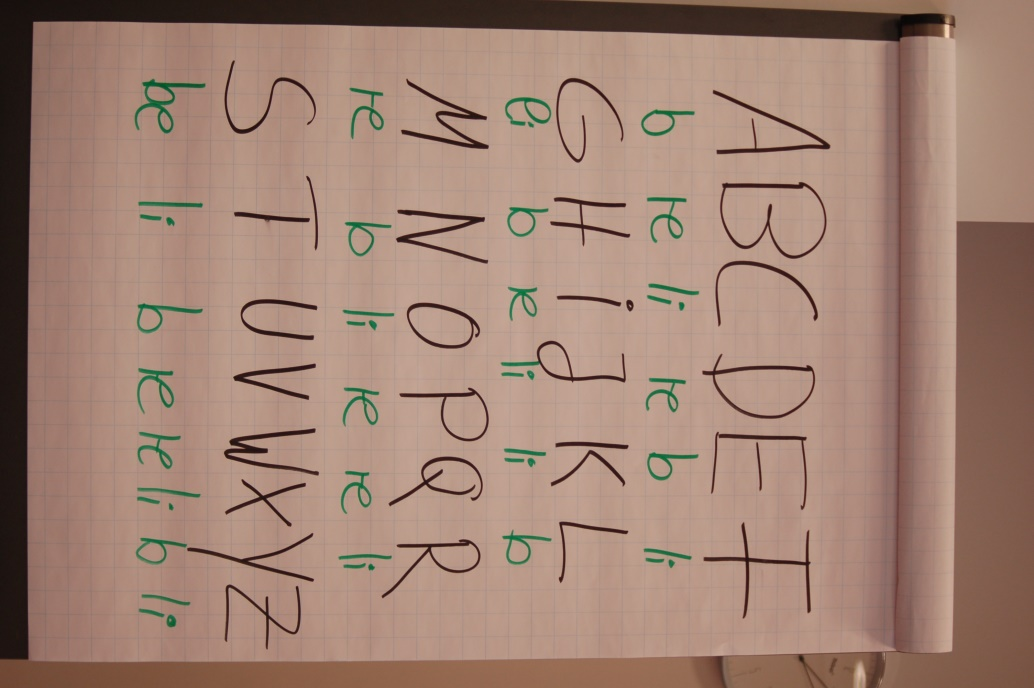 A B C D E F
b re li re b li
G H i J K L
li b re li li b
M N O P Q R
re b li re re li
S T U V W X Y Z
be li b re re li b li